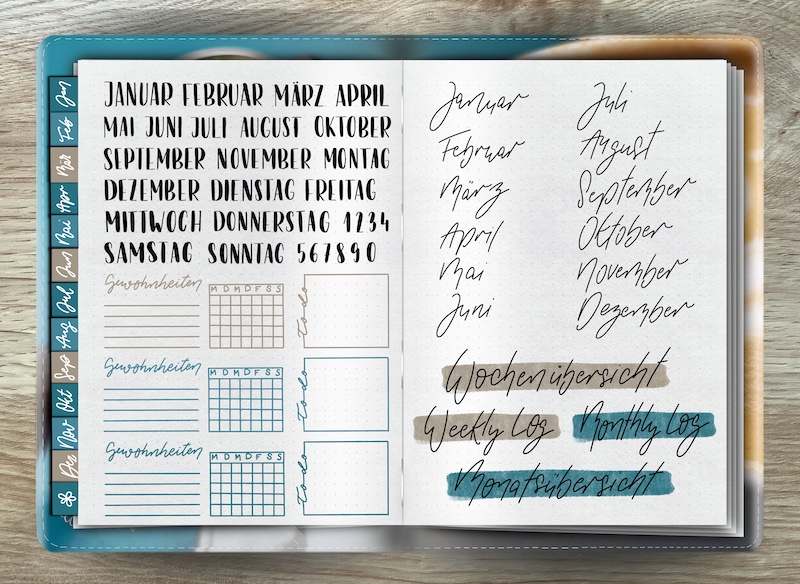 Jan
Feb
Mär
Apr
Mai
Jun
Jul
Aug
Sep
Okt
Nov
Dez
JANUAR FEBRUAR MÄRZ APRIL
MAI JUNI JULI AUGUST OKTOBER
SEPTEMBER NOVEMBER MONTAG
DEZEMBER DIENSTAG FREITAG
MITTWOCH DONNERSTAG 1234
SAMSTAG SONNTAG 567890
Gewohnheiten
M D M D F S S
to do
Gewohnheiten
M D M D F S S
to do
Gewohnheiten
M D M D F S S
to do
Januar
Februar
März
April
Mai
Juni
Juli
August
September
Oktober
November
Dezember
Wochenübersicht
Weekly Log
Monthly Log
Monatsübersicht